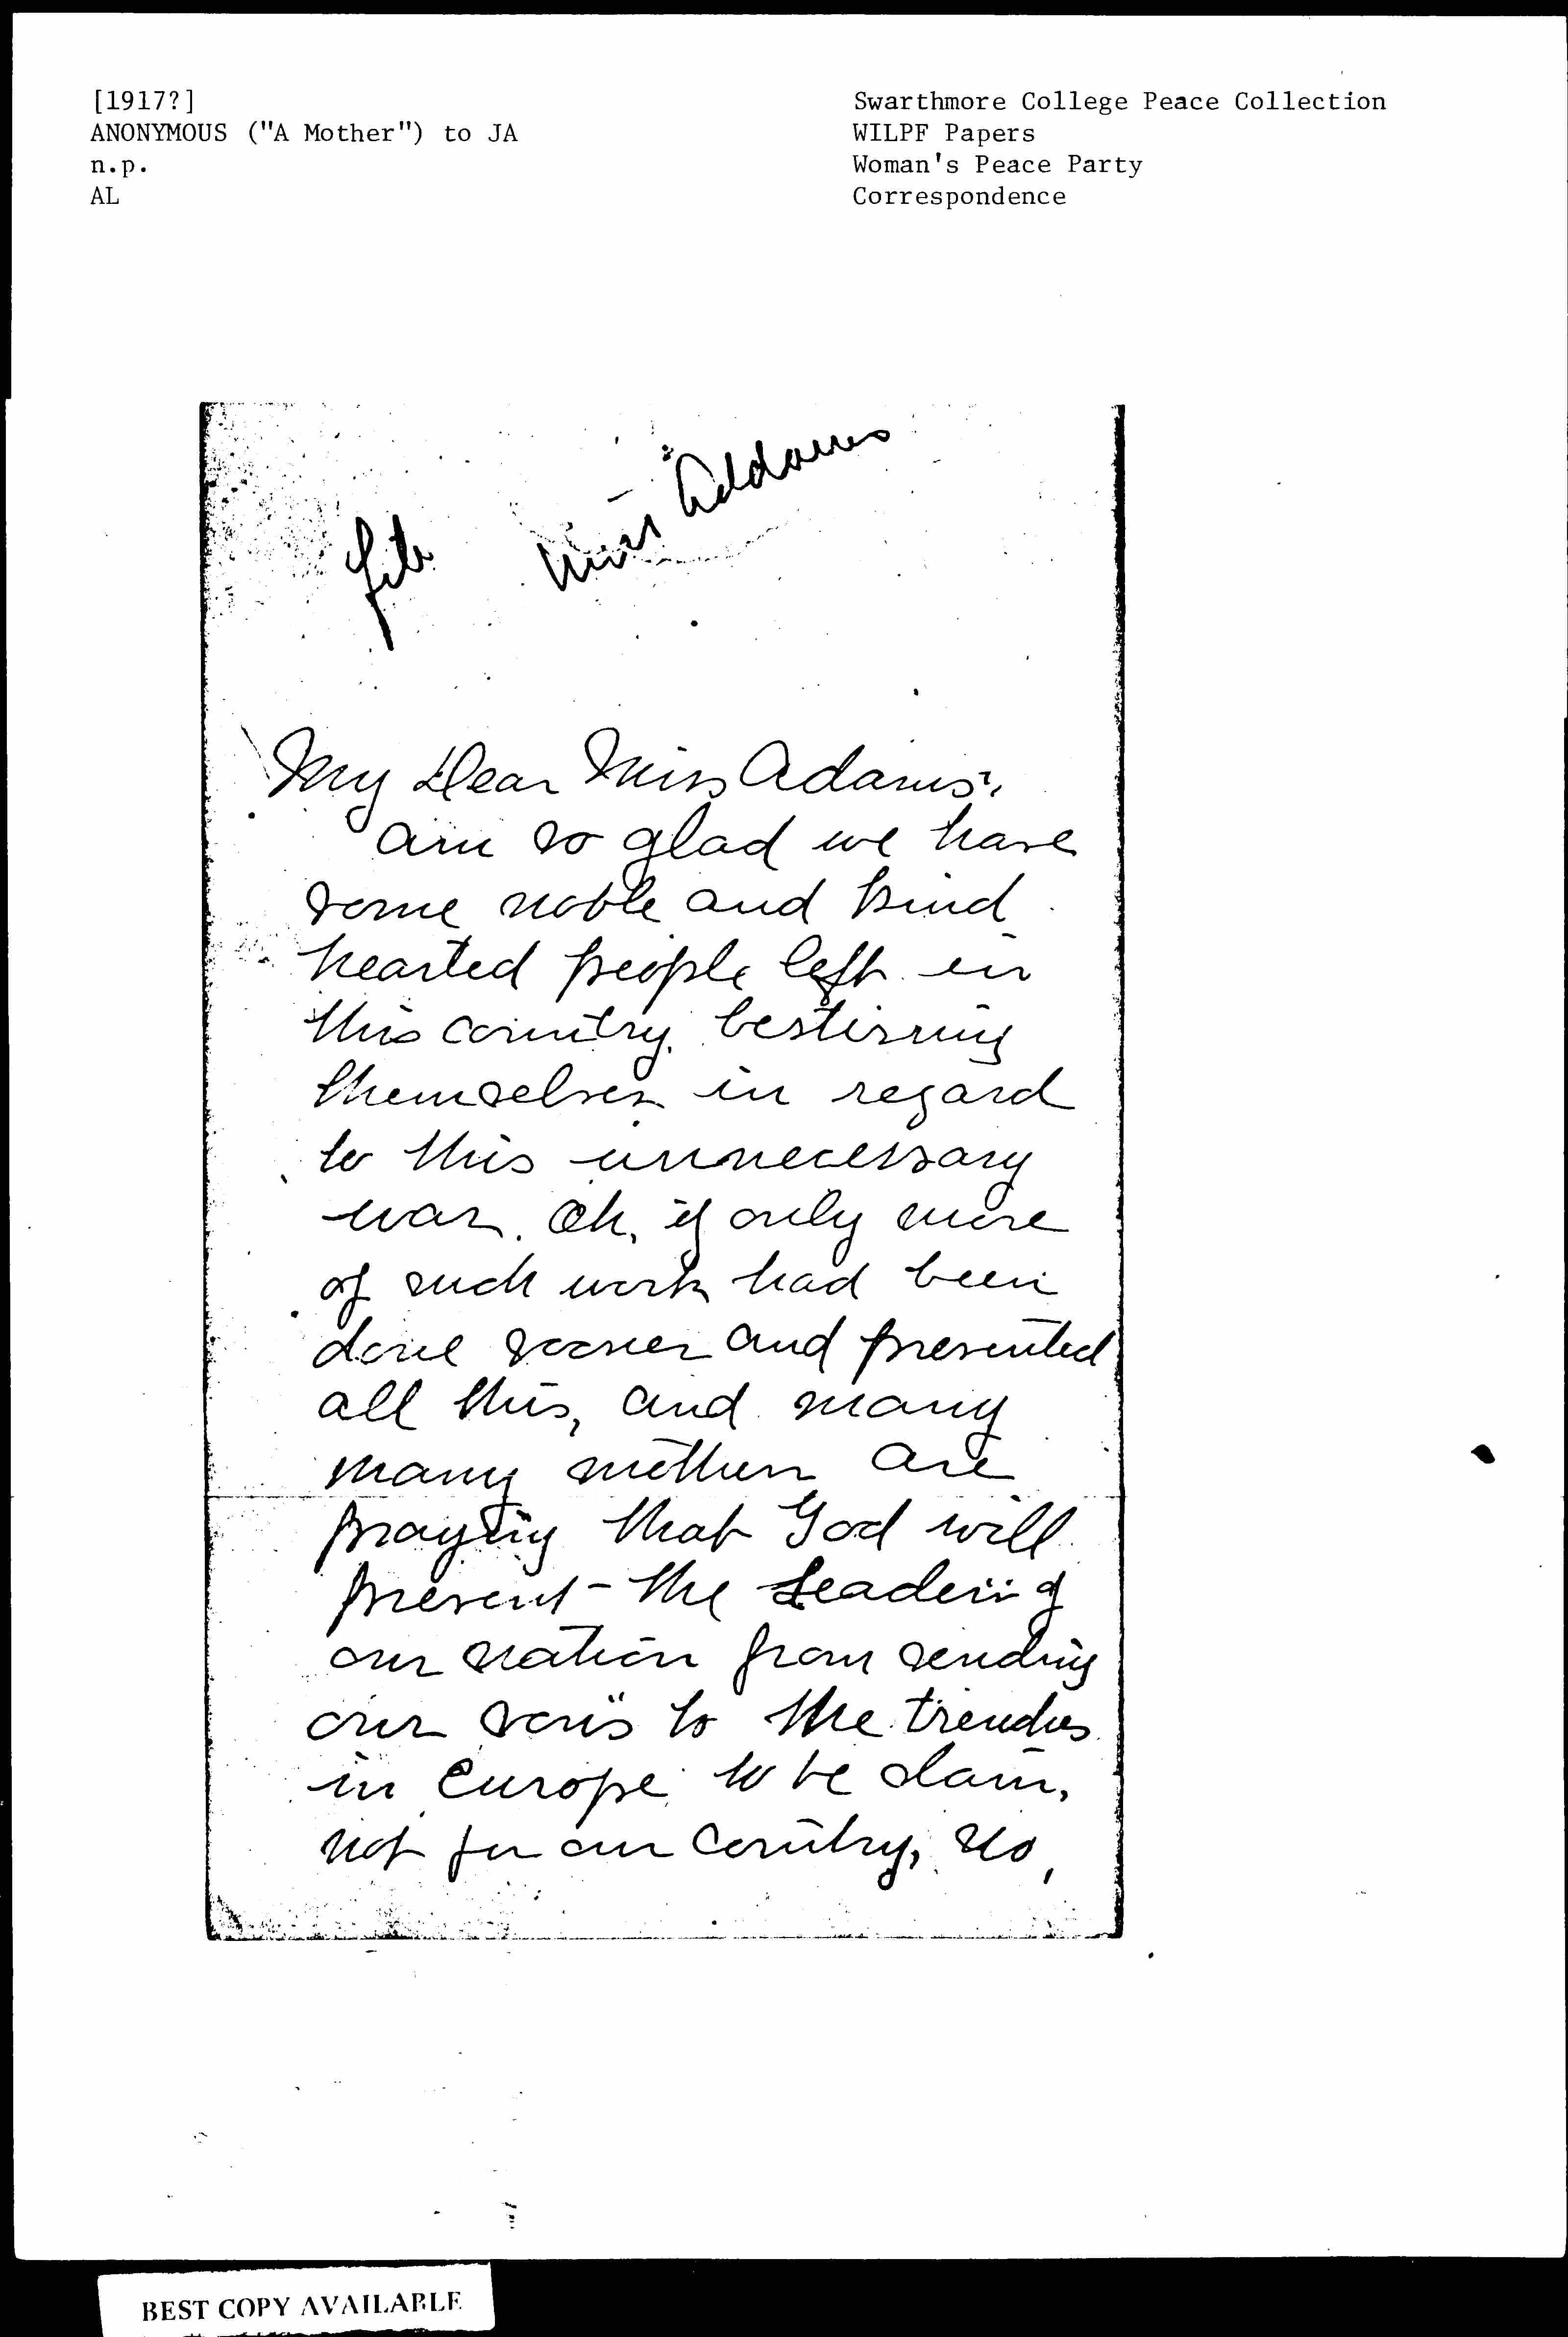 [1917?]
ANONYMOUS ("A Mother") to JA
n.p.
AL
Swarthmore College Peace Collection
WILPF Papers
Woman's Peace Party
Correspondence
file Miss Addams
My Dear Miss Adams:,
am so glad we have
some noble and kind
hearted people left in
this country. bestirring
themselves in regard
to this unnecessary
war. Oh, if only more
of such work had been
done sooner and presented
all this, and many
many mothers are
praying that God will
prevent - the Leaders of
our nation from sending
our sons to the trenches
in Europe to be slain,
not for our Country, No,
BEST COPY AVAILABLE